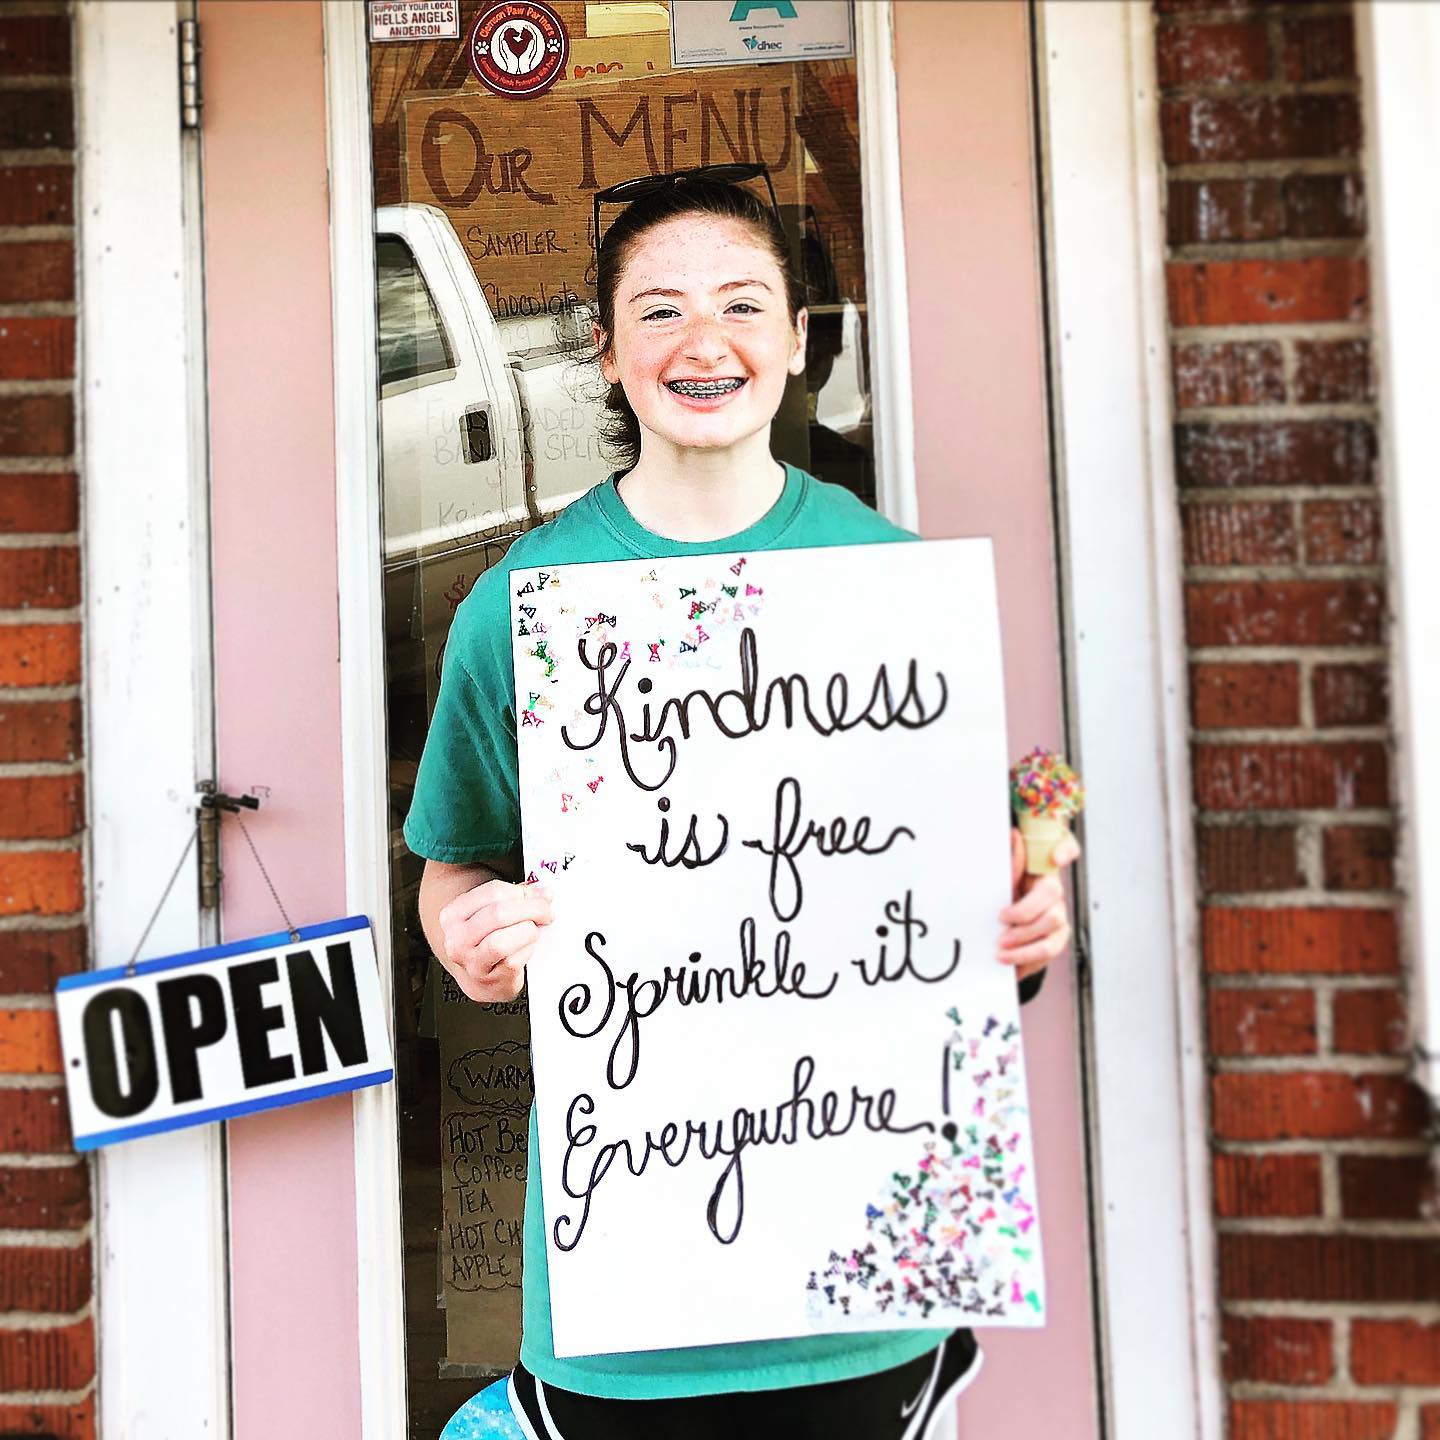 SUPPORT YOUR LOCAL
HELLS ANGELS
ANDERSON
Clemson Paw Partners
A
dhec
OUR MENU
SAMPLER:
Chocolate
FULLY LOADED
BANANA SPLIT
Kindness
is free
Sprinkle it
Everywhere!
OPEN
WARM
HOT Be
Coffee
TEA
HOT CH
APPLE